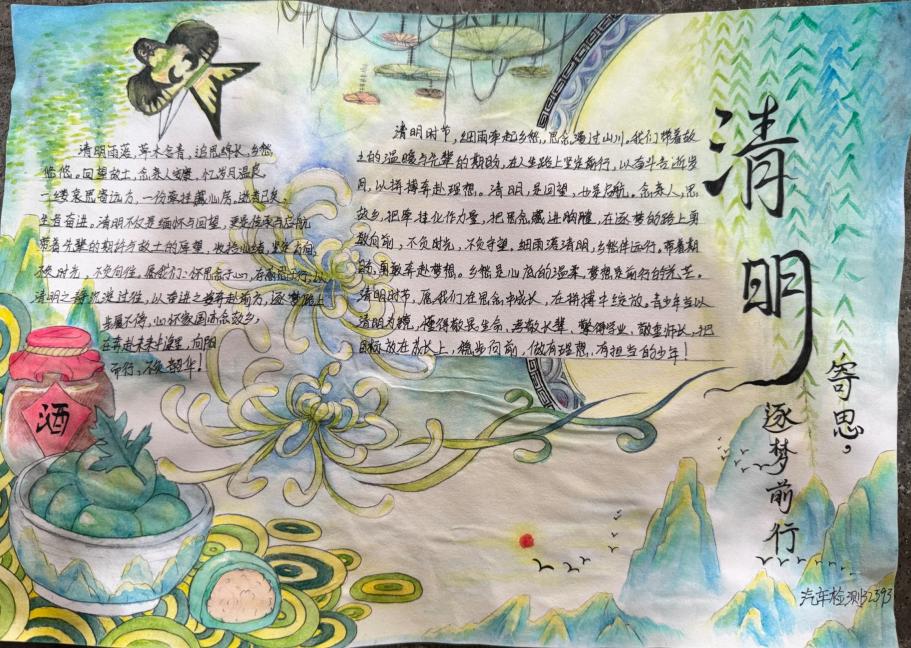 清明
寄思，
逐梦前行
清明雨落，草木含青，追思绵长，乡愁
悠悠。回望故土，念亲人安康，忆岁月温良，
一缕哀思寄远方，一份牵挂藏心房，逝者已矣，
生者奋进。清明不仅是缅怀与回望，更是传承与启航
带着先辈的期待与故土的厚望，收拾心绪，坚定方向，
不负时光，不负向往。愿我们：怀思念于心，
清明之春，以奋进之姿奔赴前方，逐梦路上
步履不停，心怀家国亦念故乡，
在奔赴未来中，向阳
而行，不负韶华！
清明时节，细雨牵起乡愁，思念漫过山川。我们带着故
土的温暖与先辈的期盼，在人生路上坚定前行，以奋斗告近岁
月，以拼搏奔赴理想。清明，是回望，也是启航，念亲人，思
故乡，把牵挂化作力量，把思念藏进胸膛，在逐梦的路上勇
敢向前，不负时光，不负守望。细雨落清明，乡愁伴远行，带着期
盼，勇敢奔赴梦想。乡愁是心底的温柔，梦想是前行的光芒。
清明时节，愿我们在思念中成长，在拼搏中绽放。青少年当以
清明为镜，懂得敬畏生命，孝敬长辈，学业，敬重师长，把
目标放在成长上，稳步向前，做有理想，有担当的少年！
酒
汽车检测32393